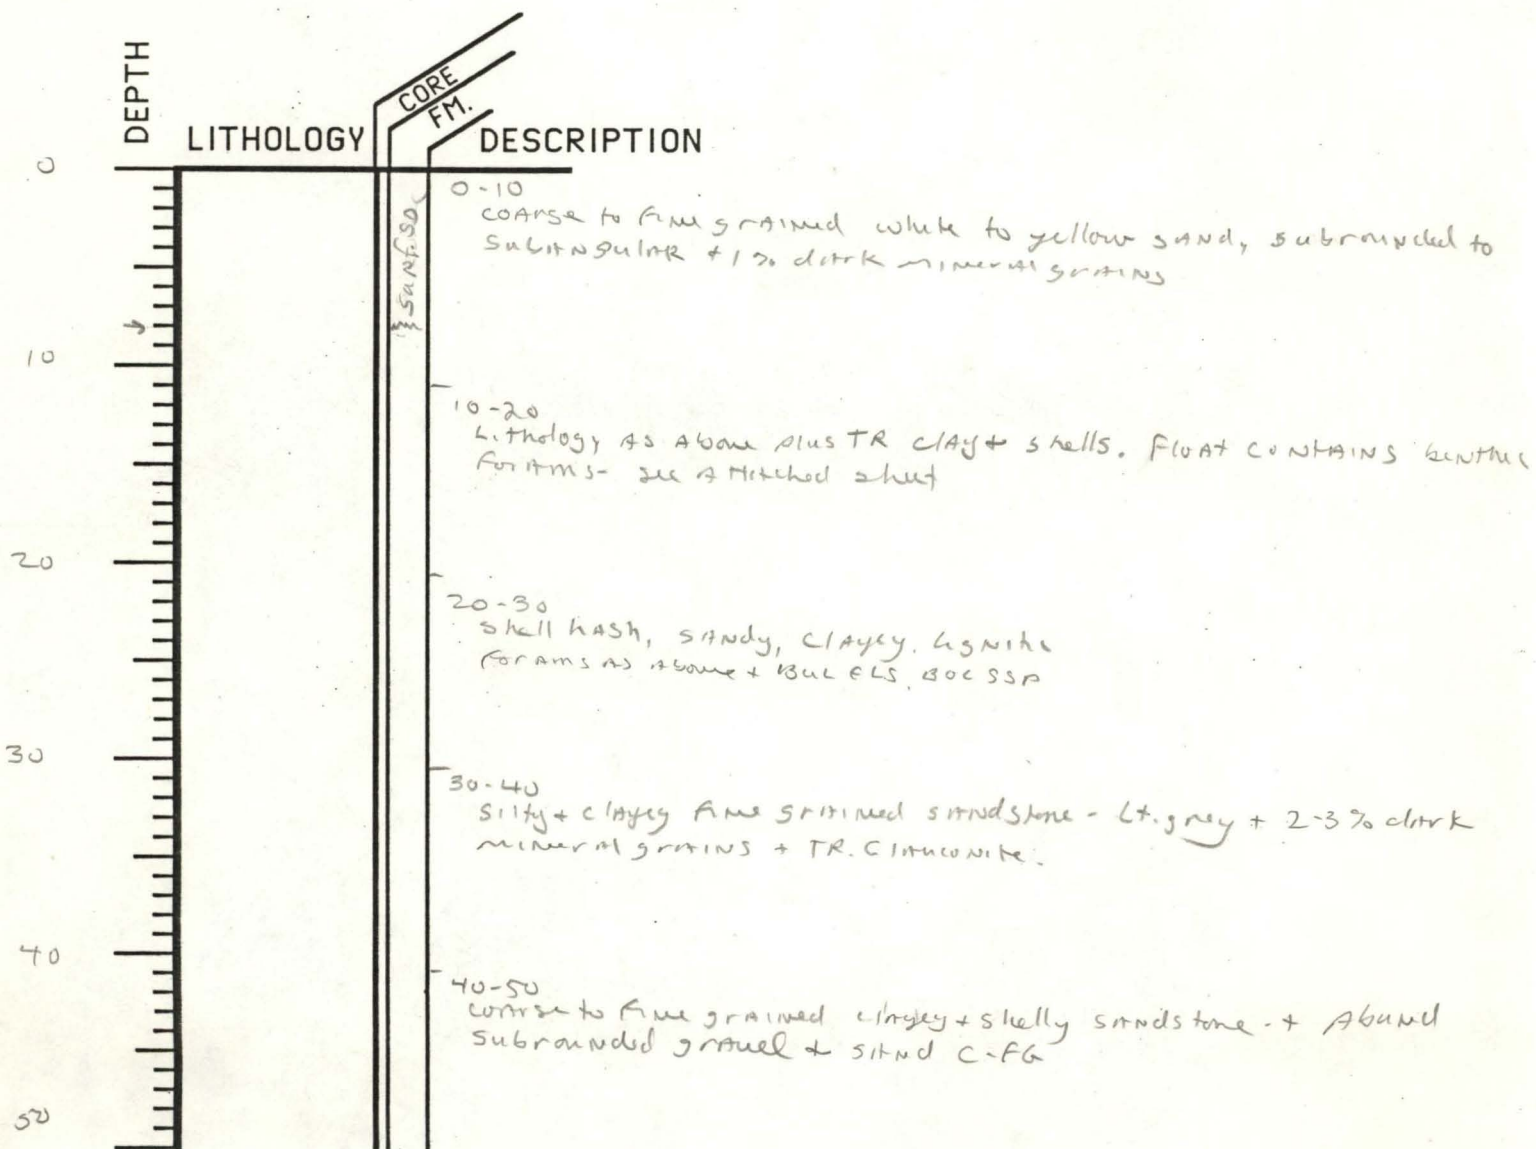 DEPTH
LITHOLOGY
CORE
FM.
DESCRIPTION
0
surf. sd.
0-10
coarse to fine grained white to yellow sand, subrounded to
subangular + 1% dark mineral grains
10
10-20
Lithology as above plus TR clay + shells. Float contains benthic
forams - see attached sheet
20
20-30
shell hash, sandy, clayey. Lignite
forams as above + BUL ELS, BOL SSP
30
30-40
silty + clayey fine grained sandstone - Lt. grey + 2-3% dark
mineral grains + TR. Glauconite.
40
40-50
coarse to fine grained clayey + shelly sandstone. + Abund
subrounded gravel + sand C-FG
50